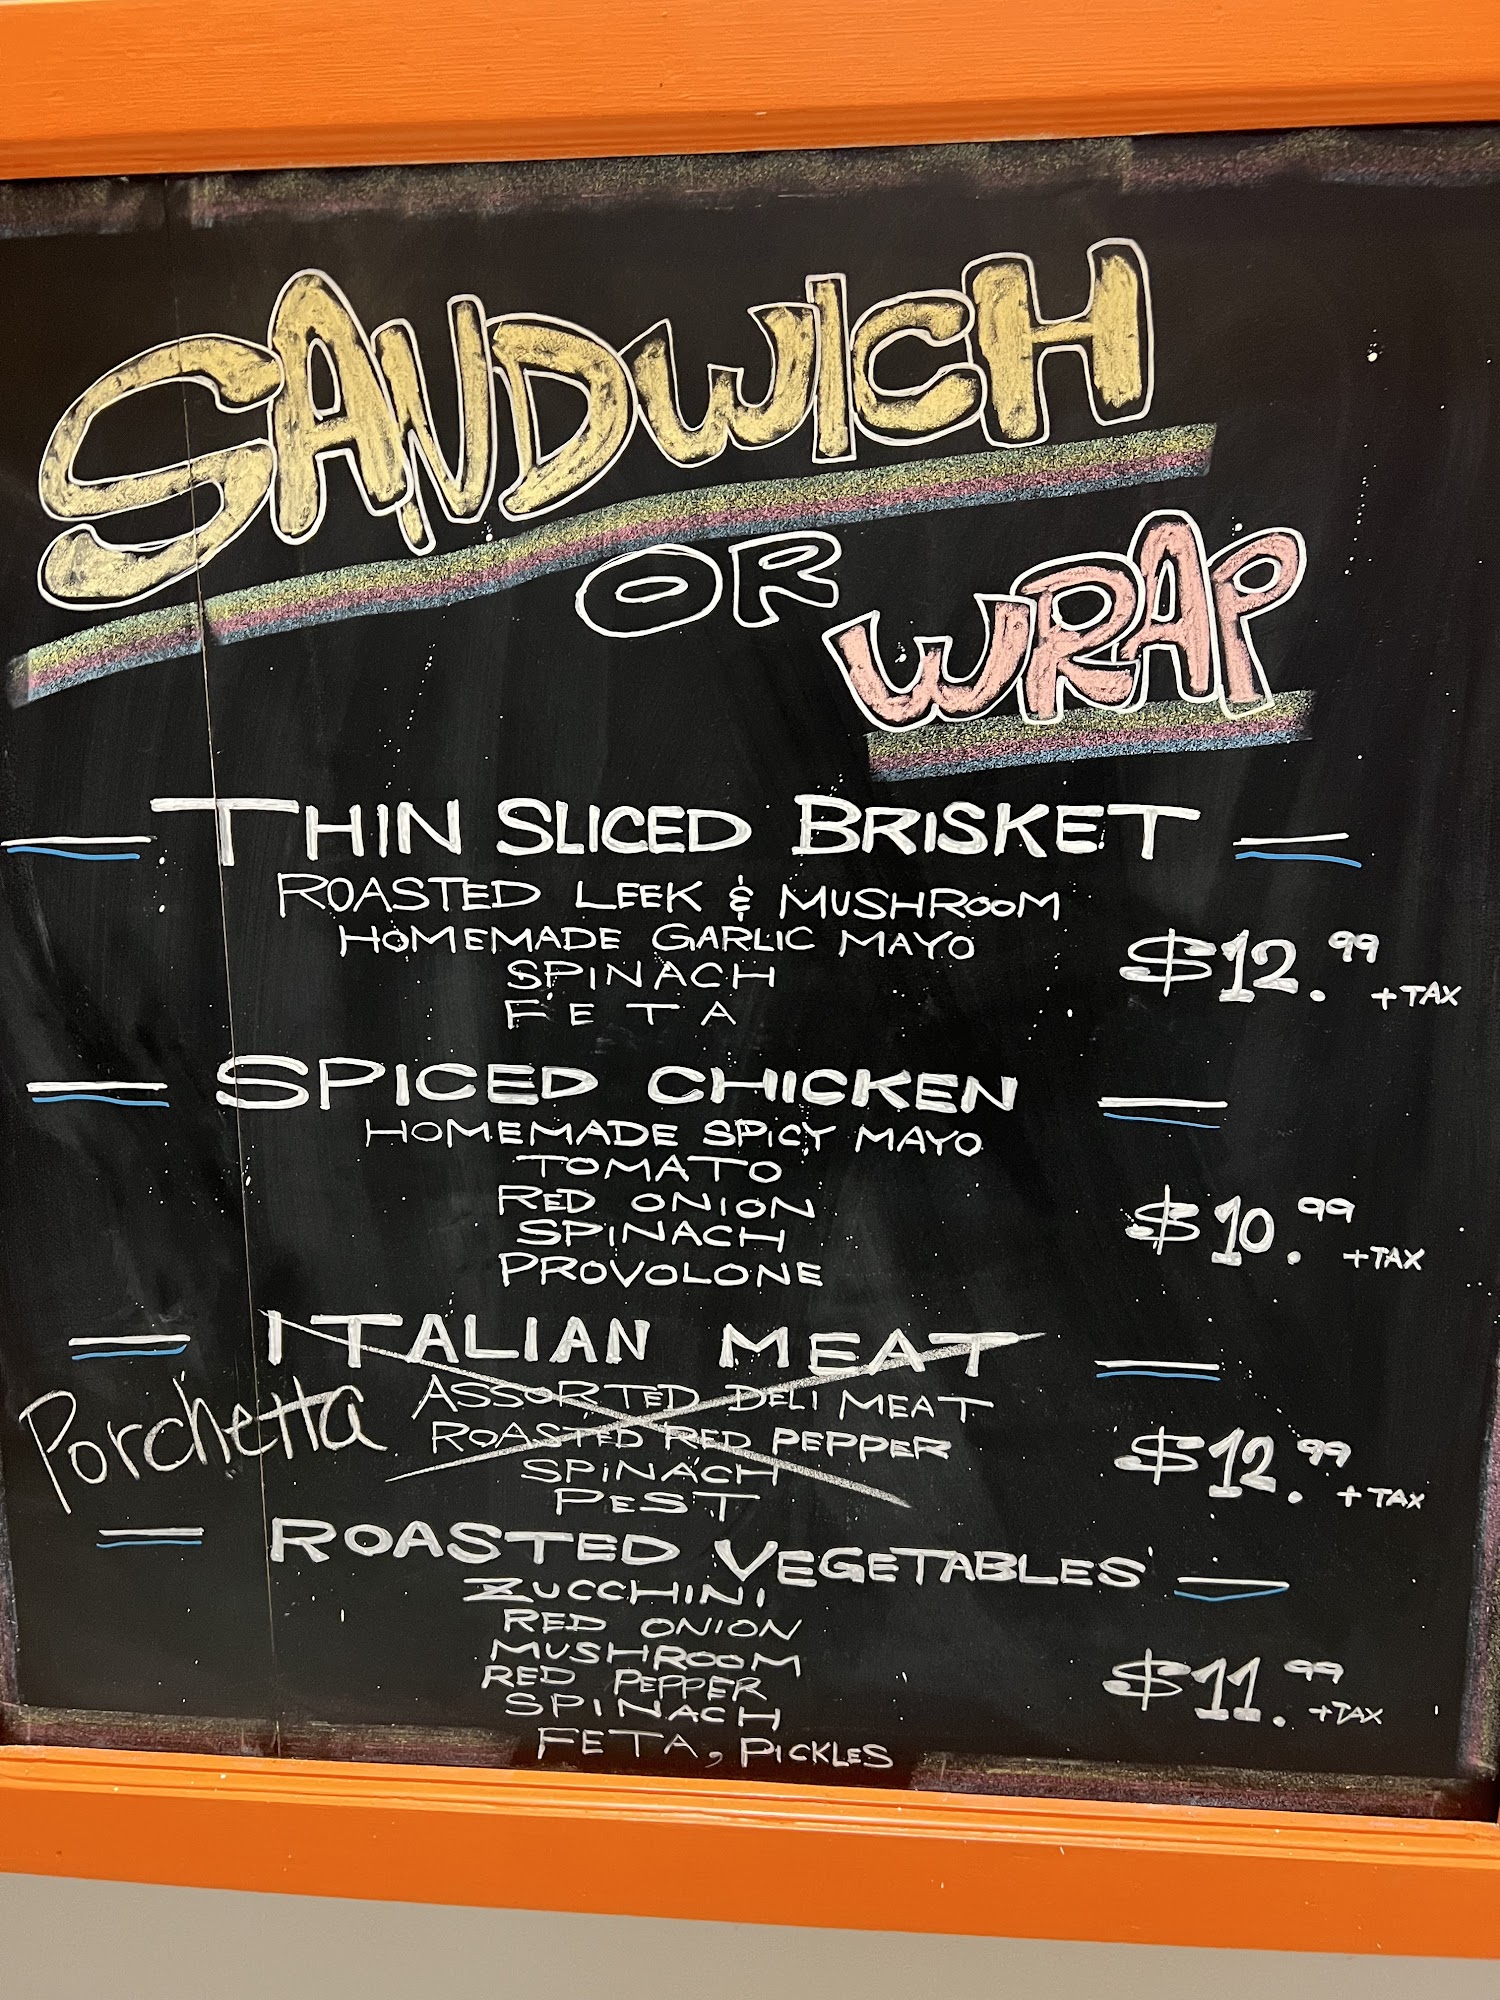 SANDWICH
OR
WRAP
THIN SLICED BRISKET
ROASTED LEEK & MUSHROOM
HOMEMADE GARLIC MAYO
SPINACH
FETA
$12.99 +TAX
SPICED CHICKEN
HOMEMADE SPICY MAYO
TOMATO
RED ONION
SPINACH
PROVOLONE
$10.99 +TAX
ITALIAN MEAT
Porchetta
ASSORTED DELI MEAT
ROASTED RED PEPPER
SPINACH
PEST
$12.99 +TAX
ROASTED VEGETABLES
ZUCCHINI
RED ONION
MUSHROOM
RED PEPPER
SPINACH
FETA, PICKLES
$11.99 +TAX